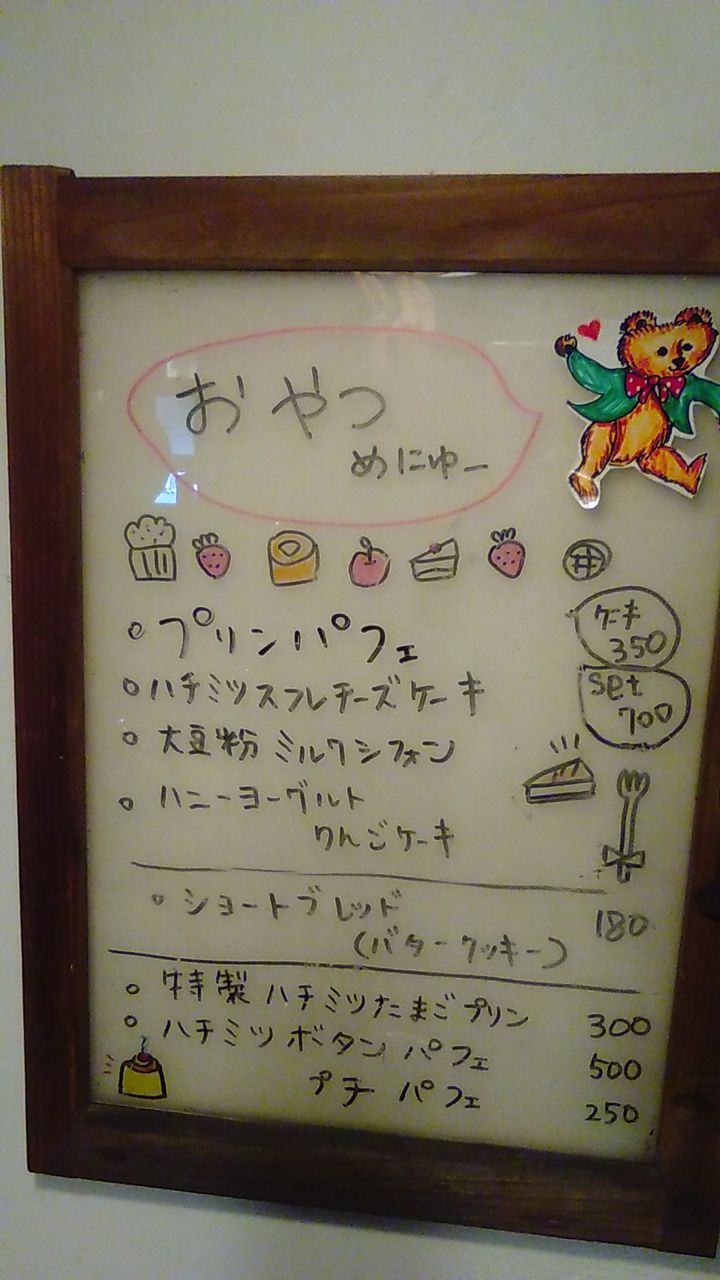 おやつ
めにゅー
○プリンパフェ
ケーキ
350
○ハチミツスフレチーズケーキ
set
700
○大豆粉ミルクシフォン
○ハニーヨーグルト
りんごケーキ
○ショートブレッド
(バタークッキー)
180
○特製ハチミツたまごプリン 300
○ハチミツボタンパフェ 500
プチパフェ 250